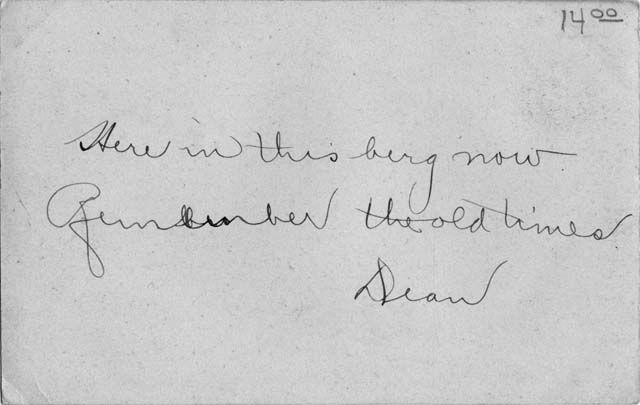 14 00
Here in this berg now.
Remember the old times
Dean